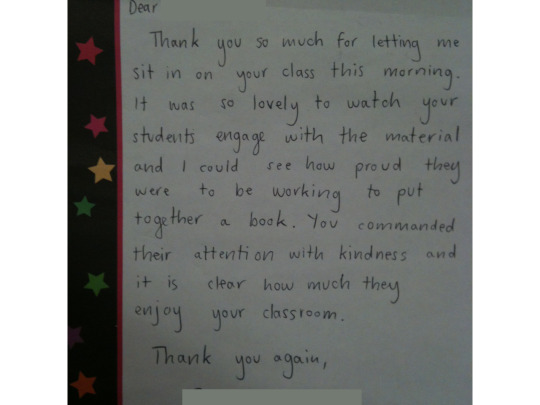 Dear
Thank you so much for letting me
sit in on your class this morning.
It was so lovely to watch your
students engage with the material
and I could see how proud they
were to be working to put
together a book. You commanded
their attention with kindness and
it is clear how much they
enjoy your classroom.
Thank you again,